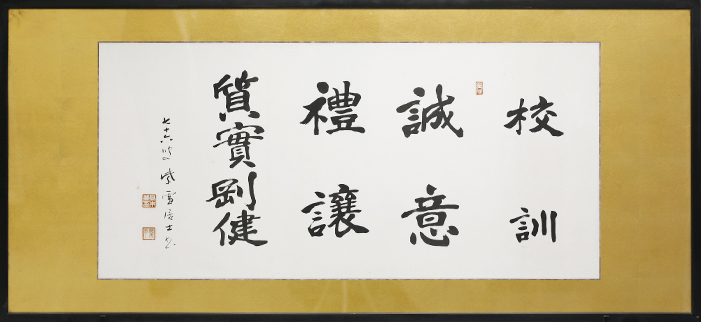 校訓
誠意
禮讓
質實剛健
七十六